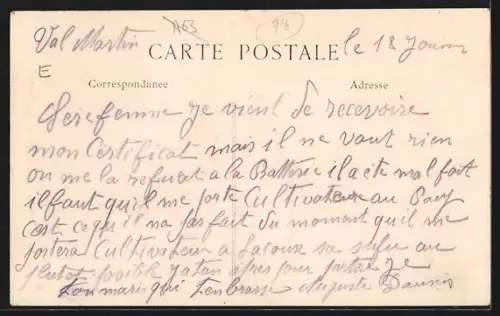 A63 73
Val Martin
le 18 Jouin
CARTE POSTALE
E
Correspondance Adresse
Chere femme je vient de recevoire
mon Certificat mais il ne vaut rien
on me la refusat a la Batterie il a ete mal fait
il faut qu'il me porte Cultivateur au Pay
cest ce qu'il na pas fait du momant qu'il me
portera Cultivateur a Lacoux sa sufit au
plutot posible jatan apres pour partire je
ton maris qui tenbrasse Auguste